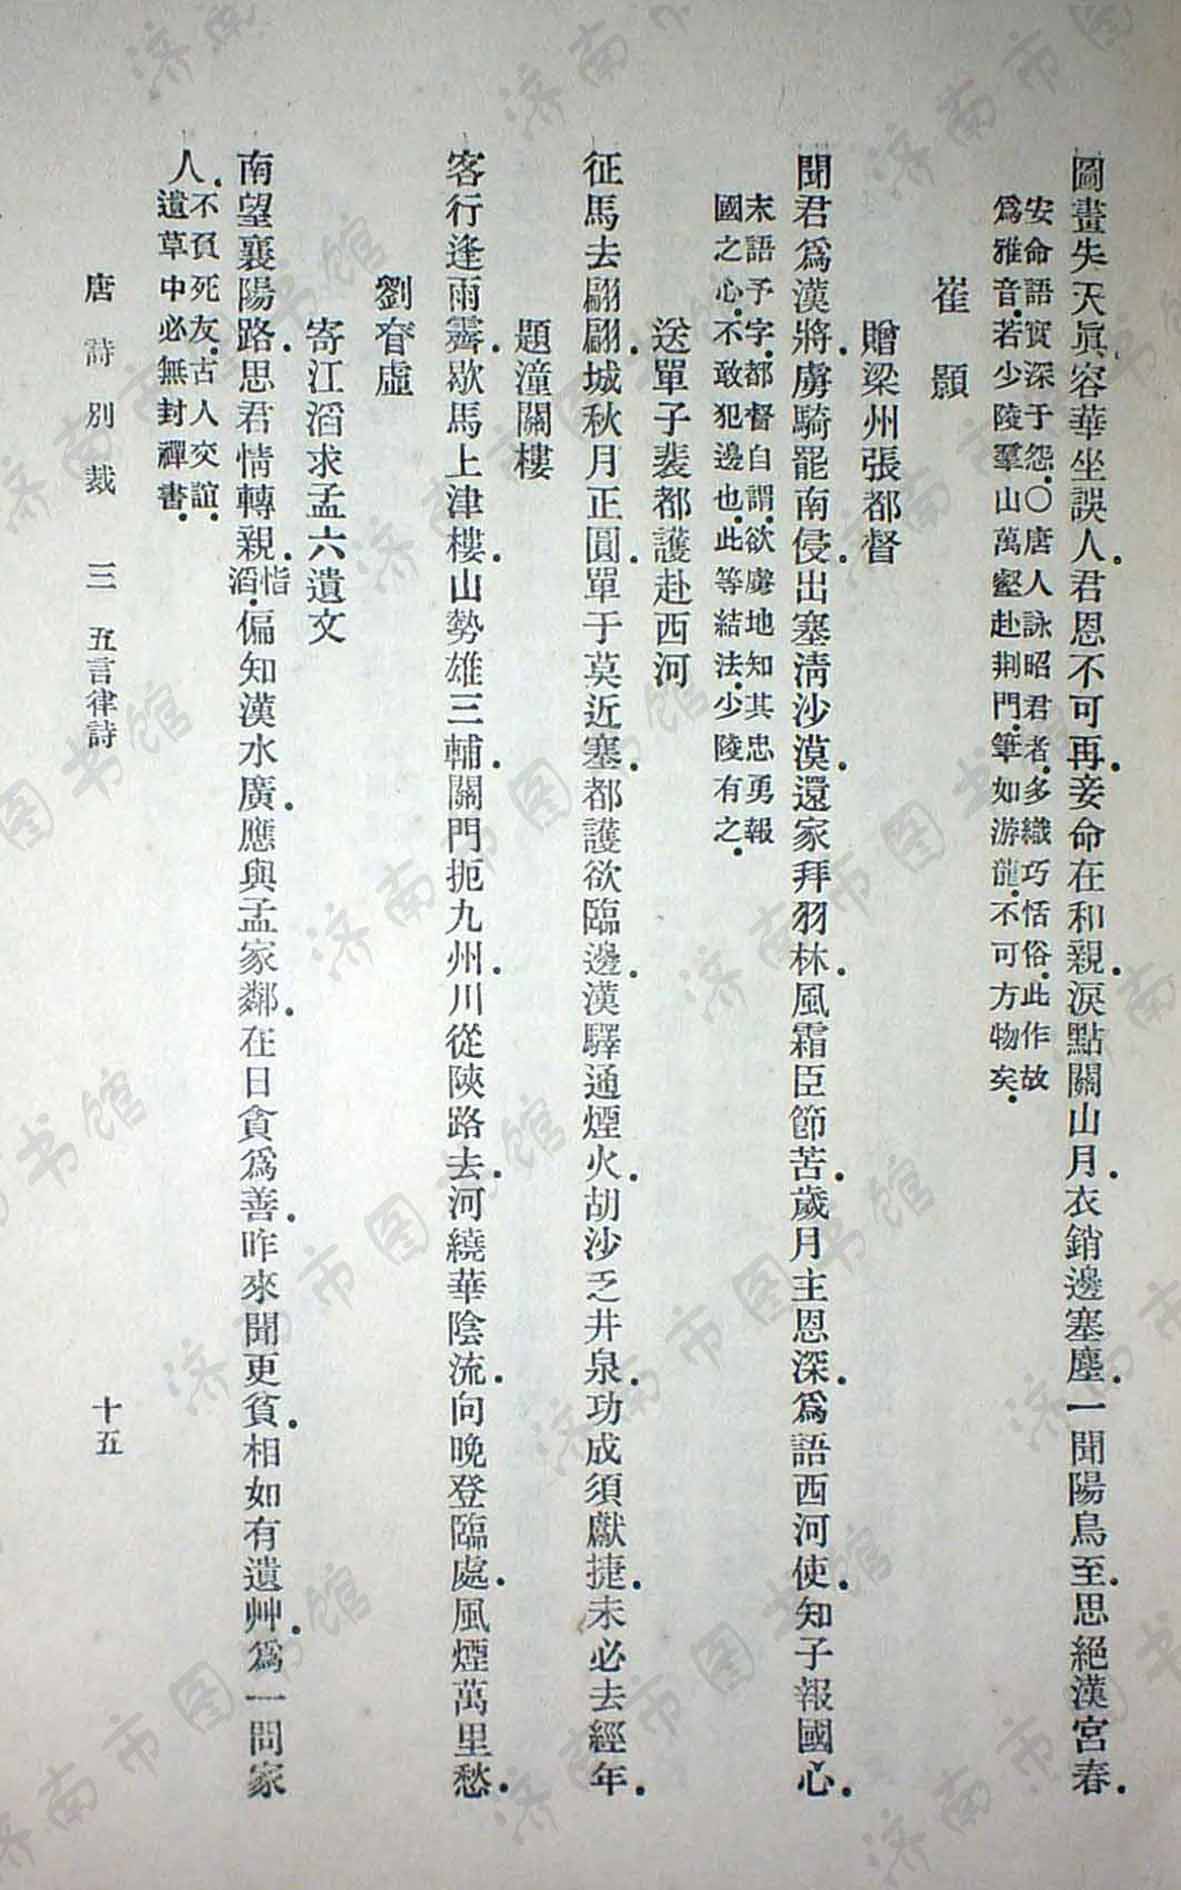 圖畫失天眞.容華坐誤人.君恩不可再.妾命在和親.淚點關山月.衣銷邊塞塵.一聞陽鳥至.思絕漢宮春.
安命語.實深于怨.○唐人詠昭君者.多纖巧恬俗.此作故
爲雅音.若少陵羣山萬壑赴荆門.筆如游龍.不可方物矣.
崔顥
贈梁州張都督
聞君爲漢將.虜騎罷南侵.出塞淸沙漠.還家拜羽林.風霜臣節苦.歲月主恩深.爲語西河使.知子報國心.
末語予字.都督自謂.欲虜地知其忠勇報
國之心.不敢犯邊也.此等結法.少陵有之.
送單于裴都護赴西河
征馬去翩翩.城秋月正圓.單于莫近塞.都護欲臨邊.漢驛通煙火.胡沙乏井泉.功成須獻捷.未必去經年.
題潼關樓
客行逢雨霽.歇馬上津樓.山勢雄三輔.關門扼九州.川從陝路去.河繞華陰流.向晚登臨處.風煙萬里愁.
劉眘虛
寄江滔求孟六遺文
南望襄陽路.思君情轉親.指滔.偏知漢水廣.應與孟家鄰.在日貪爲善.昨來聞更貧.相如有遺艸.爲一問家
人.不負死友.古人交誼.
遺草中必無封禪書.
唐詩別裁 三 五言律詩 十五
济南市图书馆